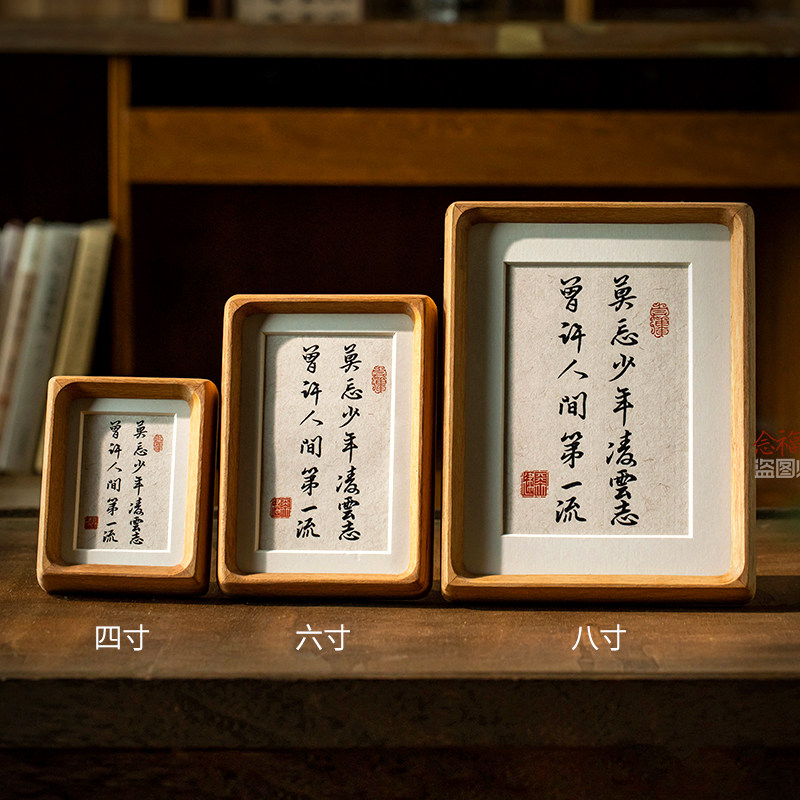 莫忘少年凌雲志
曾许人間第一流
莫忘少年凌雲志
曾许人間第一流
莫忘少年凌雲志
曾许人間第一流
四寸
六寸
八寸
念
盗图